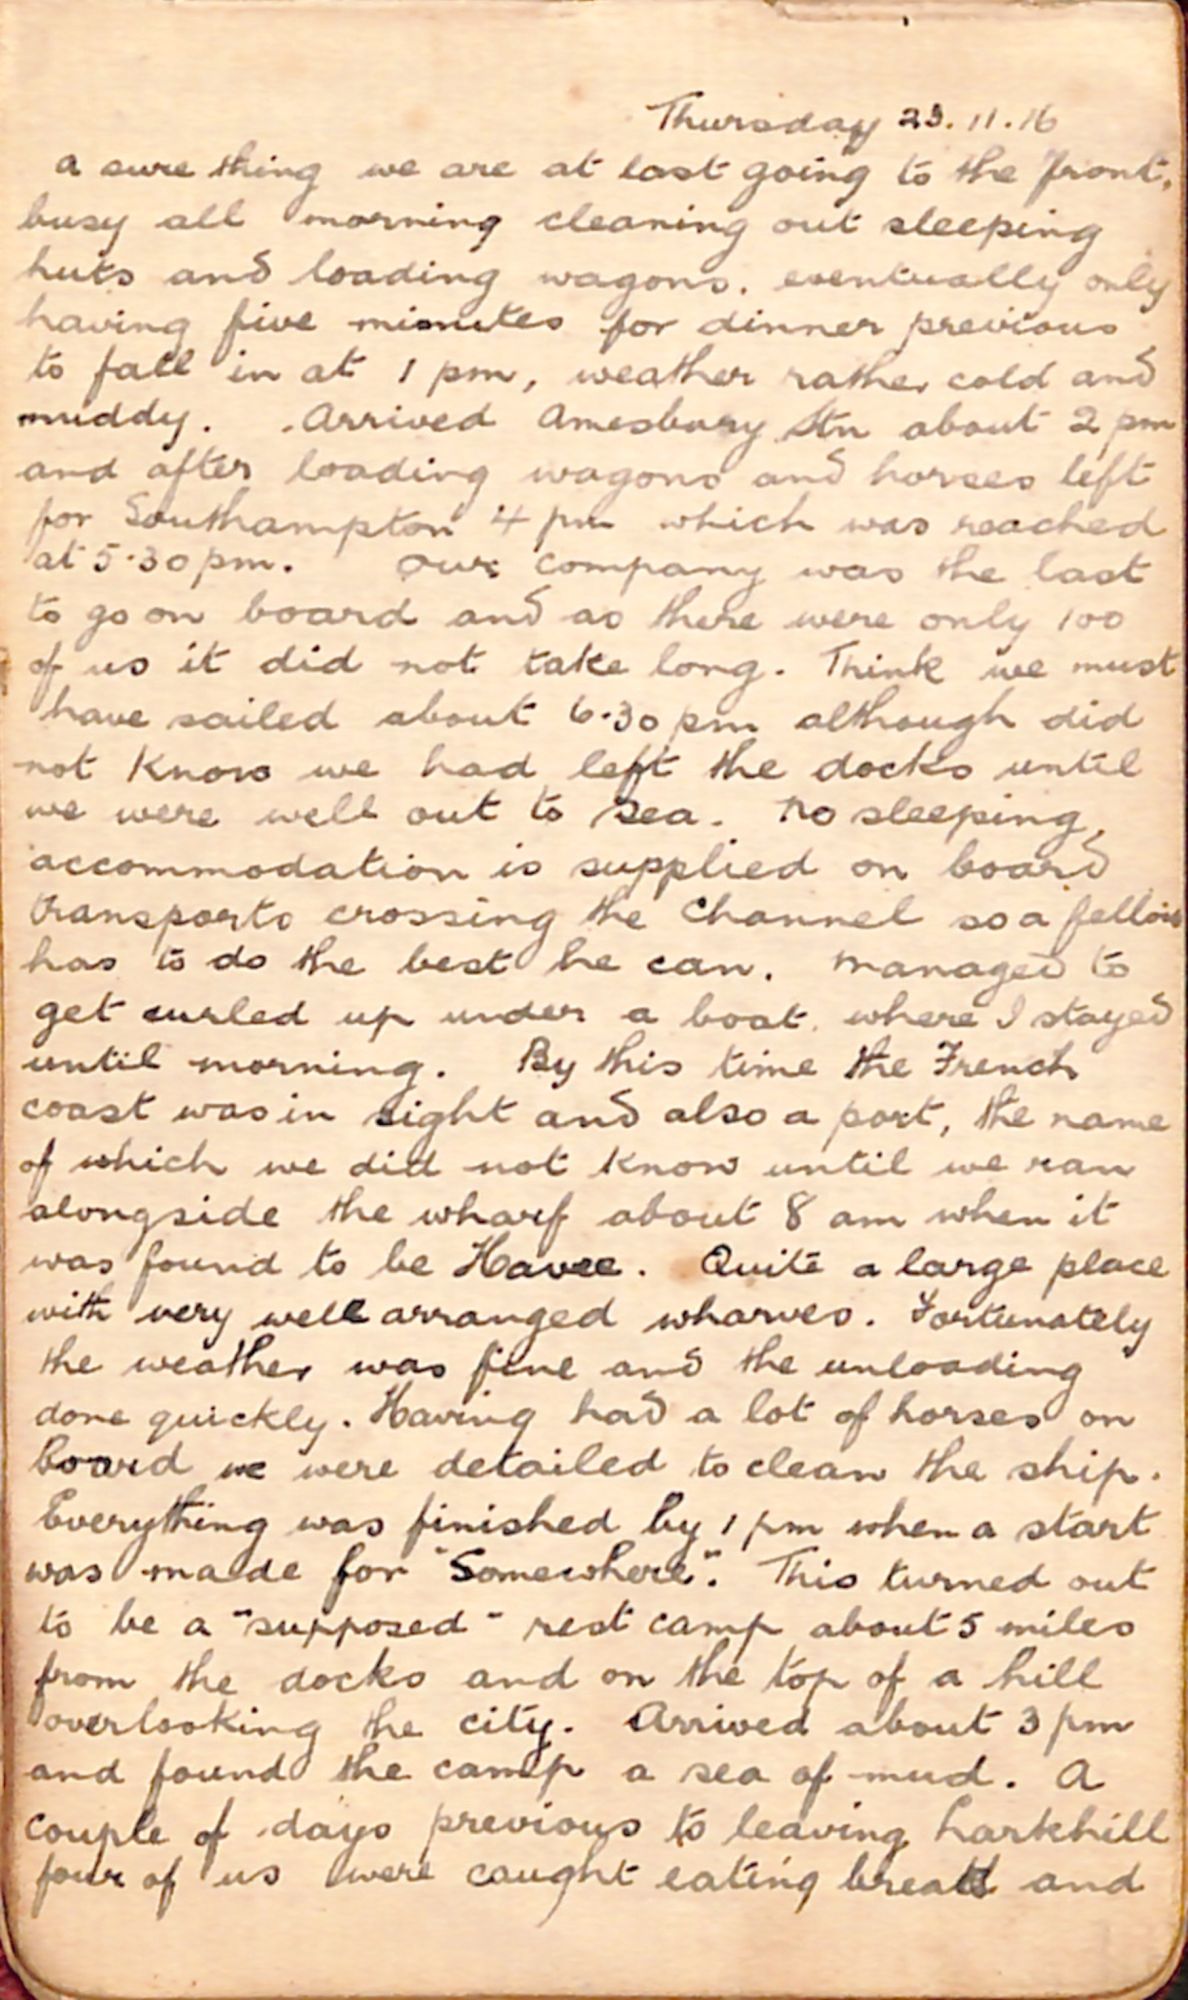 Thursday 23.11.16
a sure thing we are at last going to the front,
busy all morning cleaning out sleeping
huts and loading wagons. eventually only
having five minutes for dinner previous
to fall in at 1 pm, weather rather cold and
muddy. Arrived Amesbury Stn about 2 pm
and after loading wagons and horses left
for Southampton 4 pm which was reached
at 5.30 pm. Our Company was the last
to go on board and as there were only 100
of us it did not take long. Think we must
have sailed about 6.30 pm although did
not know we had left the docks until
we were well out to sea. No sleeping,
accommodation is supplied on board
transports crossing the Channel so a fellow
has to do the best he can. Managed to
get curled up under a boat where I stayed
until morning. By this time the French
coast was in sight and also a port, the name
of which we did not know until we ran
alongside the wharf about 8 am when it
was found to be Havre. Quite a large place
with very well arranged wharves. Fortunately
the weather was fine and the unloading
done quickly. Having had a lot of horses on
board we were detailed to clean the ship.
Everything was finished by 1 pm when a start
was made for "Somewhere". This turned out
to be a "supposed" rest camp about 5 miles
from the docks and on the top of a hill
overlooking the city. Arrived about 3 pm
and found the camp a sea of mud. A
couple of days previous to leaving Larkhill
four of us were caught eating bread and